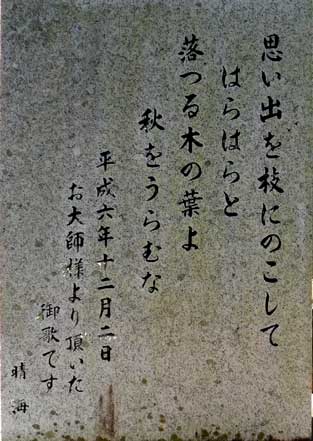 思い出を枝にのこして
はらはらと
落つる木の葉よ
秋をうらむな
平成六年十二月二日
お大師様より頂いた
御歌です
晴海